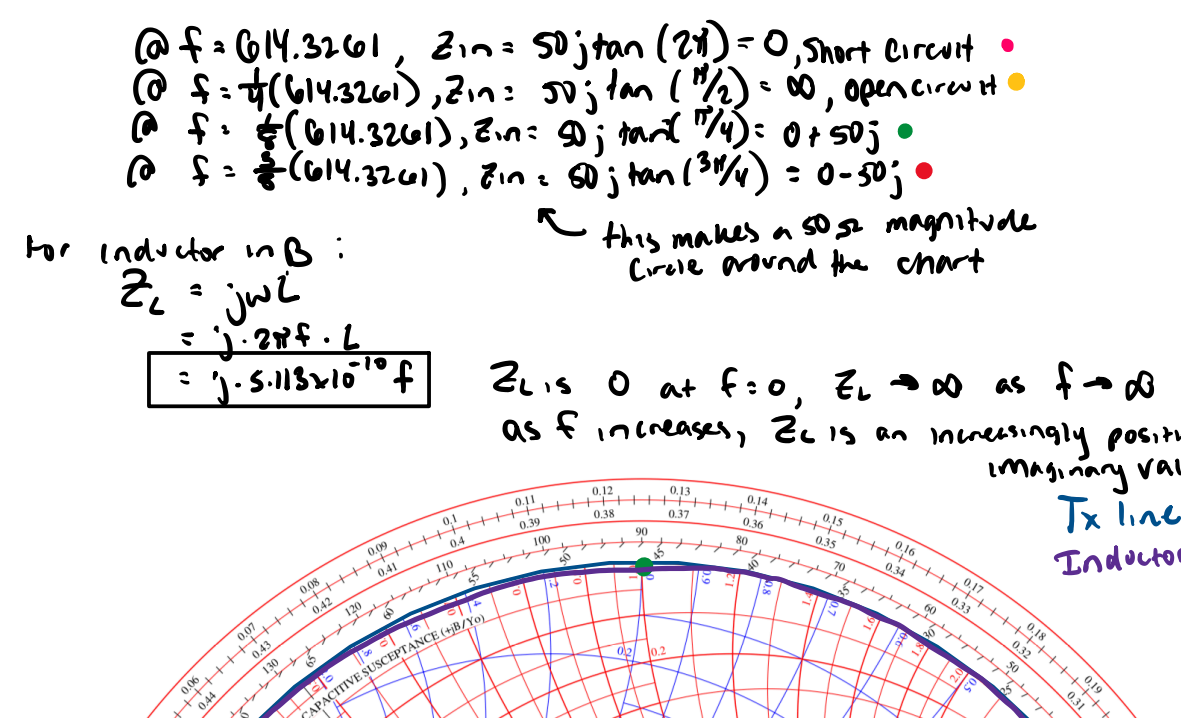 @ f = 614.3261, Zin = 50j tan (2π) = 0, short circuit
@ f = 1/4(614.3261), Zin = 50j tan (π/2) = ∞, open circuit
@ f = 1/8(614.3261), Zin = 50j tan (π/4) = 0 + 50j
@ f = 3/8(614.3261), Zin = 50j tan (3π/4) = 0 - 50j
this makes a 50 Ω magnitude
circle around the chart
For inductor in B :
Z_L = jωL
= j · 2πf · L
= j · 5.113x10^-10 f
Z_L is 0 at f = 0, Z_L → ∞ as f → ∞
as f increases, Z_L is an increasingly positi
imaginary val
Tx line
Inductor
0.06 0.07 0.08 0.09 0.1 0.11 0.12 0.13 0.14 0.15 0.16 0.17 0.18 0.19
0.44 0.43 0.42 0.41 0.4 0.39 0.38 0.37 0.36 0.35 0.34 0.33 0.32 0.31
130 120 110 100 90 80 70 60 50
65 60 55 50 45 40 35 30 25
0.9 1.2 0.8 1.4 0.7 1.6 0.6 1.8 2.0 0.5
CAPACITIVE SUSCEPTANCE (+jB/Yo)
0.2 0.2